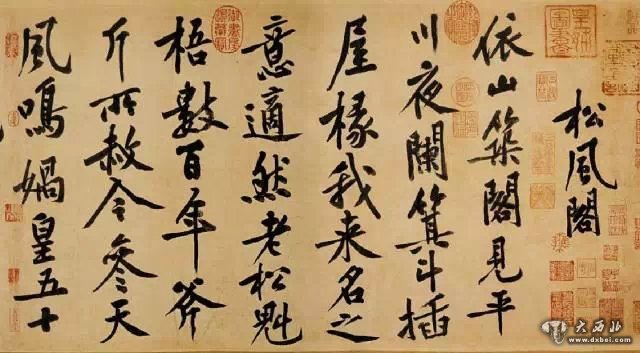 松風閣
依山築閣見平
川夜闌箕斗插
屋椽我來名之
意適然老松魁
梧數百年斧
斤所赦今參天
風鳴媧皇五十
大西北
www.dxbei.com